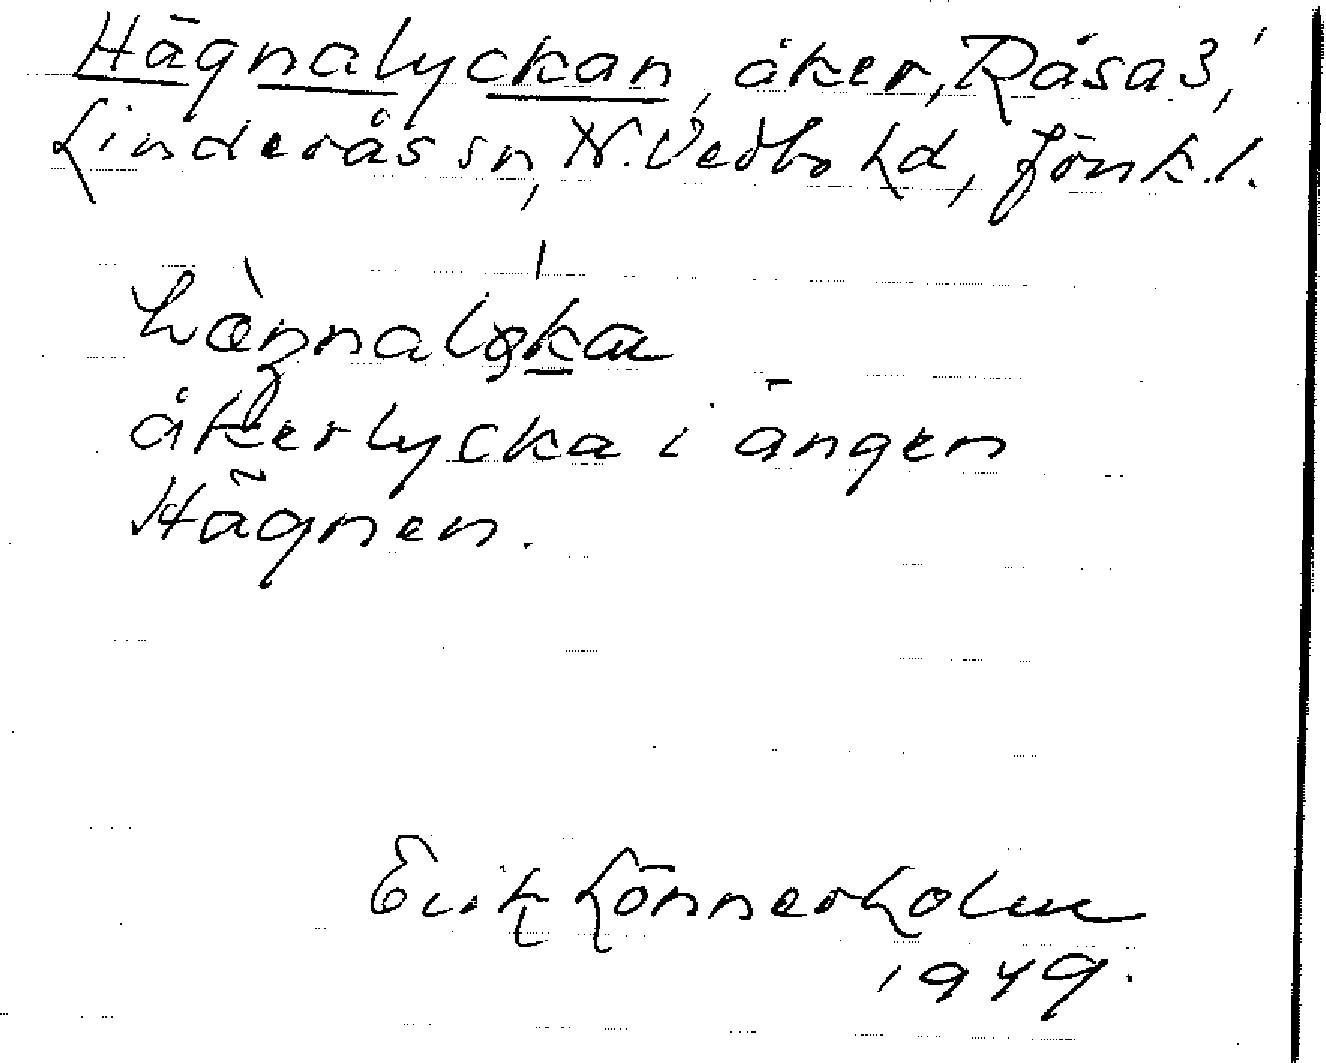 Hägnalyckan, åker, Råsa 3,
Linderås sn, N. Vedbo hd, Jönk. l.
åkerlycka i ängen
Hägnen.
Erik Lönnerholm
1949.